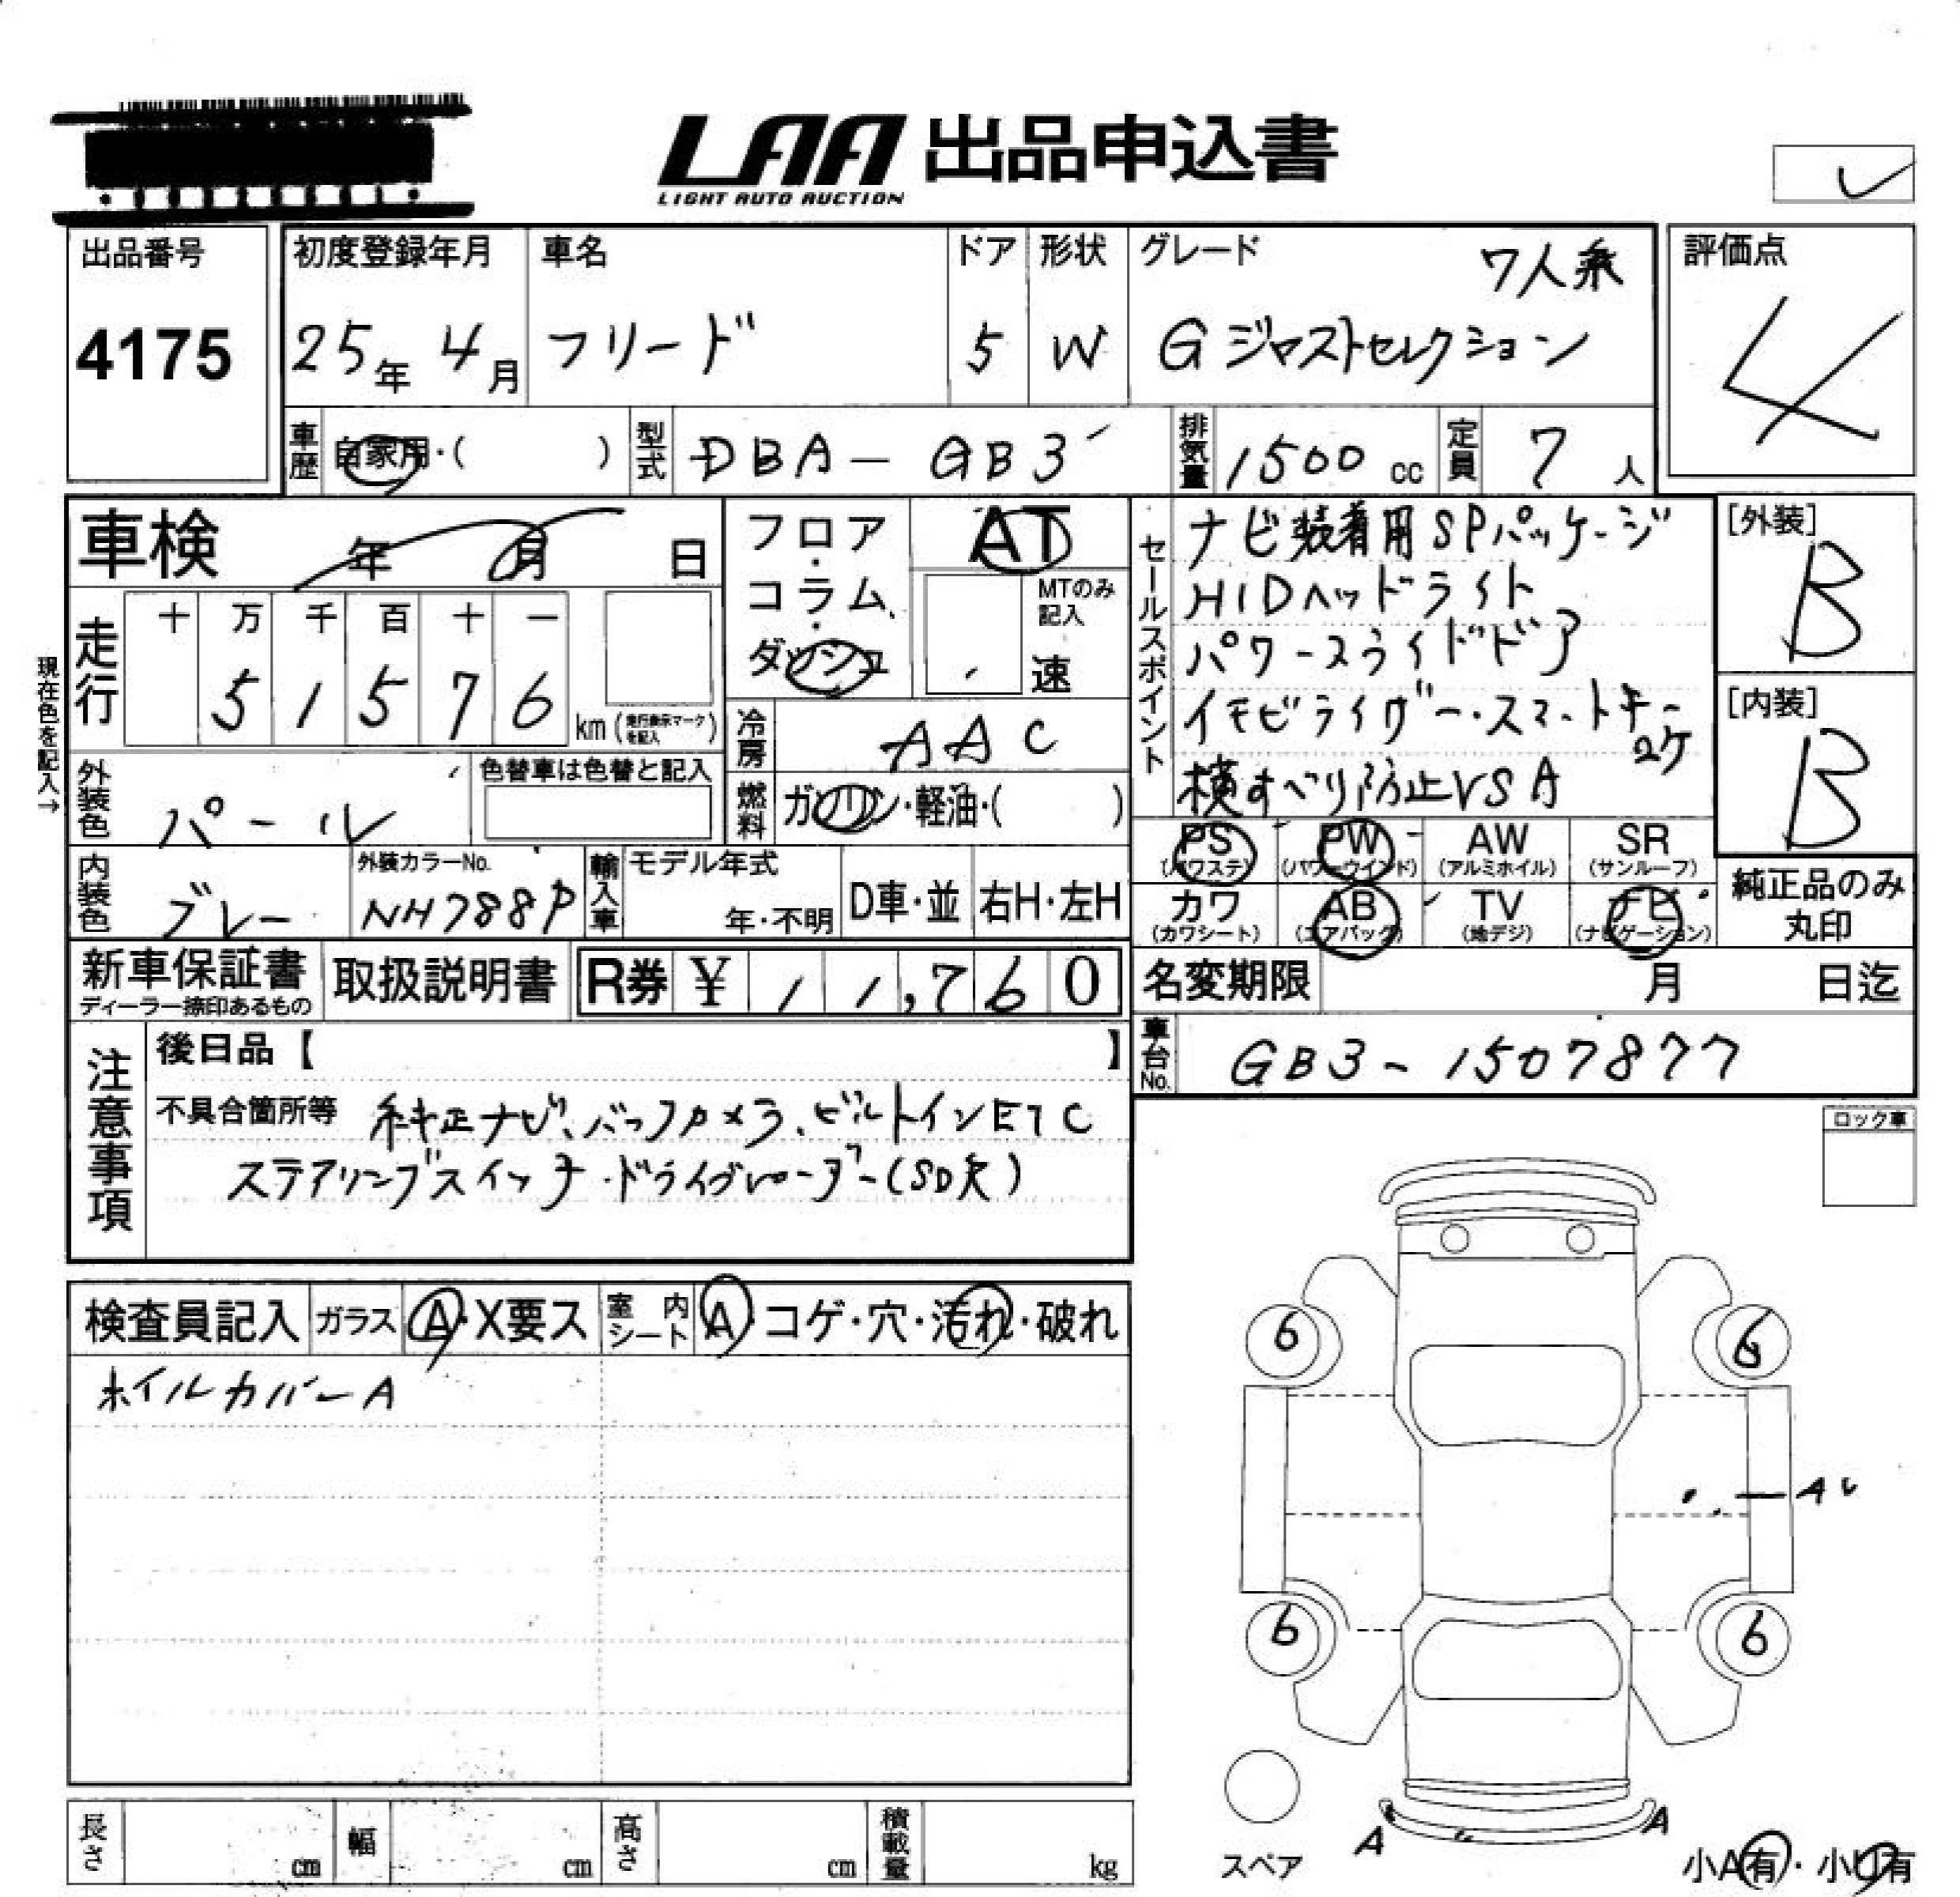 LAA 出品申込書
LIGHT AUTO AUCTION
出品番号
4175
初度登録年月
25年 4月
車名
フリード
ドア
5
形状
W
グレード
7人乗
Gジャストセレクション
評価点
4
車歴
自家用・( )
型式
DBA-GB3
排気量
1500cc
定員
7人
車検 年 月 日
走行
十 万 千 百 十 一
5 1 5 7 6
km(走行表示マークを記入)
現在色を記入→
外装色
パール
色替車は色替と記入
内装色
グレー
外装カラーNo.
NH788P
輸入車
モデル年式
年・不明
D車・並
右H・左H
フロア・コラム・ダッシュ
AT
MTのみ記入
速
冷房
AAC
燃料
ガソリン・軽油・( )
セールスポイント
ナビ装着用SPパッケージ
HIDヘッドライト
パワースライドドア
イモビライザー・スマートキー
2ケ
横すべり防止VSA
[外装]
B
[内装]
B
PS
(パワステ)
PW
(パワーウインド)
AW
(アルミホイル)
SR
(サンルーフ)
カワ
(カワシート)
AB
(エアバック)
TV
(地デジ)
ナビ
(ナビゲーション)
純正品のみ
丸印
新車保証書
ディーラー捺印あるもの
取扱説明書
R券 ¥11,760
名変期限 月 日迄
車台No.
GB3-1507877
注意事項
後日品【 】
不具合箇所等 純正ナビ、バックカメラ、ビルトインETC
ステアリングスイッチ・ドライブレコーダー(SD欠)
ロック車
検査員記入
ガラス
A・X要ス
室内シート
A・コゲ・穴・汚れ・破れ
ホイルカバーA
6
6
6
6
A
A
スペア
小A有・小U有
長さ cm
幅 cm
高さ cm
積載量 kg